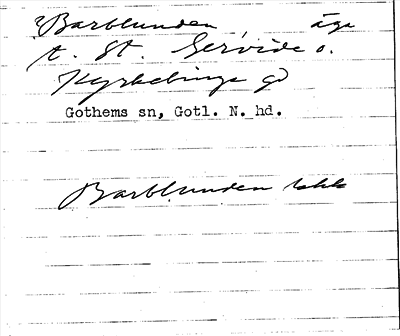 ?Barblunden, äga
t. St. Gervide o.
Kyrkelinge gd
Gothems sn, Gotl. N. hd.
Barblunden